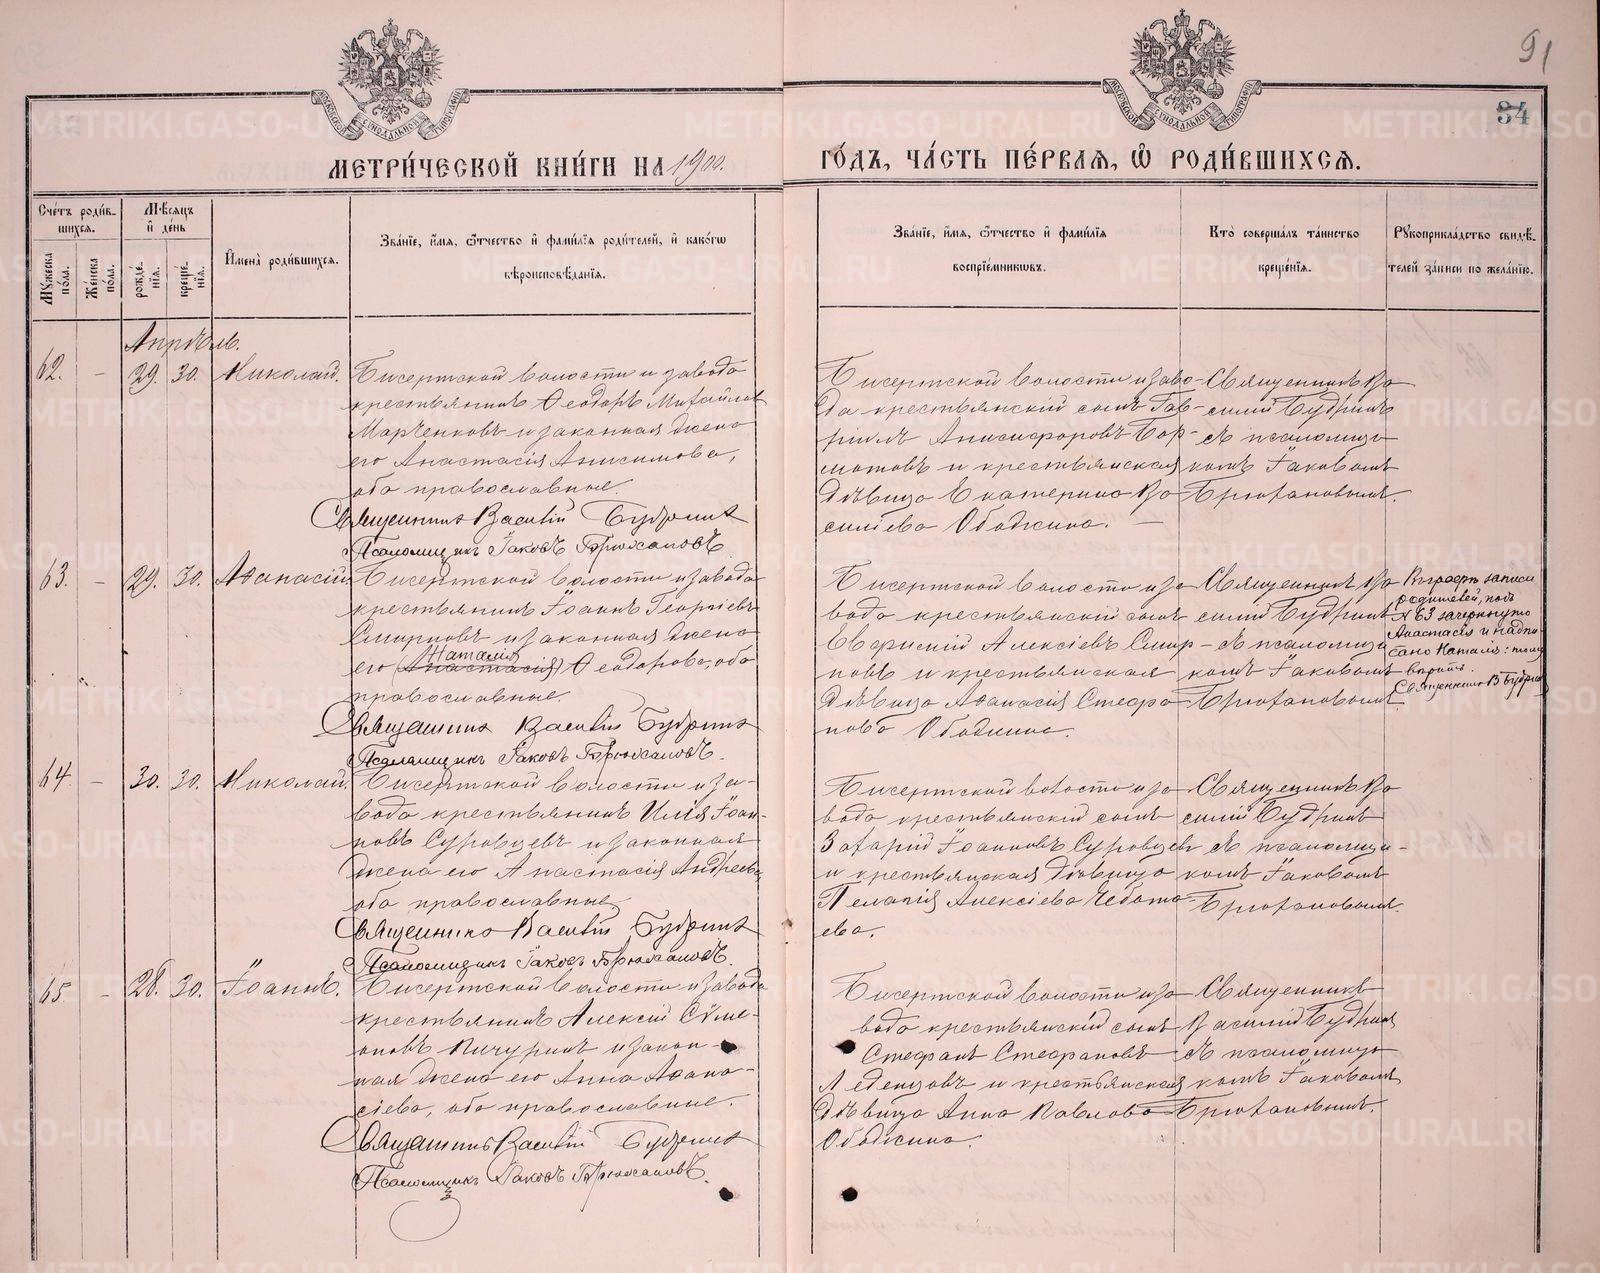 91
34
МЕТРИ́ЧЕСКОЙ КНИ́ГИ НА 1900.
ГО́ДЪ, ЧА́СТЬ ПЕ́РВАЯ, Ѡ҆ РОДИ́ВШИХСЯ.
Сче́тъ роди́в-
шихся.
Му́жеска по́ла.
Же́нска по́ла.
Мѣ́сяцъ и҆ де́нь
рожде́-нія.
креще́-нія.
И҆мена̀ роди́вшихся.
Зва́ніе, и҆́мя, ѻ҆́тчество и҆ фами́лія роди́телей, и҆ како́гѡ
вѣроисповѣ́данія.
Зва́ніе, и҆́мя, ѻ҆́тчество и҆ фами́лія
воспріе́мниковъ.
Кто̀ соверша́лъ та́инство
креще́нія.
Рꙋкоприкла́дство свидѣ́-
телей за́писи по жела́нію.
Апрѣль.
62. - 29. 30. Николай.
Бисертской волости и завода
крестьянинъ Ѳеодоръ Михайловъ
Марченковъ и законная жена
его Анастасія Анисимова,
оба православные.
Священникъ Василій Будринъ
Псаломщикъ Іаковъ Брюхановъ.
Бисертской волости и заво-
да крестьянскій сынъ Гав-
ріилъ Анисифоровъ Бор-
мотовъ и крестьянская
дѣвица Екатерина Ва-
силіева Ободкина.
Священникъ Ва-
силій Будринъ
съ псаломщи-
комъ Іаковомъ
Брюхановымъ.
63. - 29. 30. Аѳанасій.
Бисертской волости и завода
крестьянинъ Іоаннъ Георгіевъ
Смирновъ и законная жена
Наталія
его Анастасія Ѳеодорова, оба
православные.
Священникъ Василій Будринъ
Псаломщикъ Іаковъ Брюхановъ.
Бисертской волости и за-
вода крестьянскій сынъ
Евфисній Алексіевъ Смир-
новъ и крестьянская
дѣвица Аѳанасія Стефа-
нова Ободкина.
Священникъ Ва-
силій Будринъ
съ псаломщи-
комъ Іаковомъ
Брюхановымъ.
Въ графѣ записи
родителей, подъ
№ 63 зачеркнуто
Анастасія и надпи-
сано Наталія: тому
вѣрить.
Священникъ В. Будринъ
64 - 30. 30. Николай.
Бисертской волости и за-
вода крестьянинъ Илія Іоан-
новъ Суровцевъ и законная
жена его Анастасія Андреева,
оба православные.
Священникъ Василій Будринъ
Псаломщикъ Іаковъ Брюхановъ.
Бисертской волости и за-
вода крестьянскій сынъ
Захарій Іоанновъ Суровцевъ
и крестьянская дѣвица
Пелагія Алексіева Чебота-
ева.
Священникъ Ва-
силій Будринъ
съ псаломщи-
комъ Іаковомъ
Брюхановымъ.
65 - 28. 30. Іоаннъ.
Бисертской волости и завода
крестьянинъ Алексій Сѵме-
оновъ Пичугинъ и закон-
ная жена его Анна Аѳана-
сіева, оба православные.
Священникъ Василій Будринъ
Псаломщикъ Іаковъ Брюхановъ.
Бисертской волости и за-
вода крестьянскій сынъ
Стефанъ Стефановъ
Леденцовъ и крестьянская
дѣвица Анна Павлова
Ободкина.
Священникъ
Василій Будринъ
съ псаломщи-
комъ Іаковомъ
Брюхановымъ.
METRIKI.GASO-URAL.RU